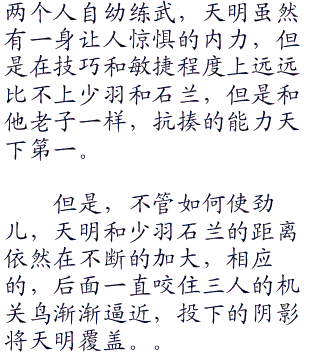 两个人自幼练武，天明虽然
有一身让人惊惧的内力，但
是在技巧和敏捷程度上远远
比不上少羽和石兰，但是和
他老子一样，抗揍的能力天
下第一。
但是，不管如何使劲
儿，天明和少羽石兰的距离
依然在不断的加大，相应
的，后面一直咬住三人的机
关鸟渐渐逼近，投下的阴影
将天明覆盖。。